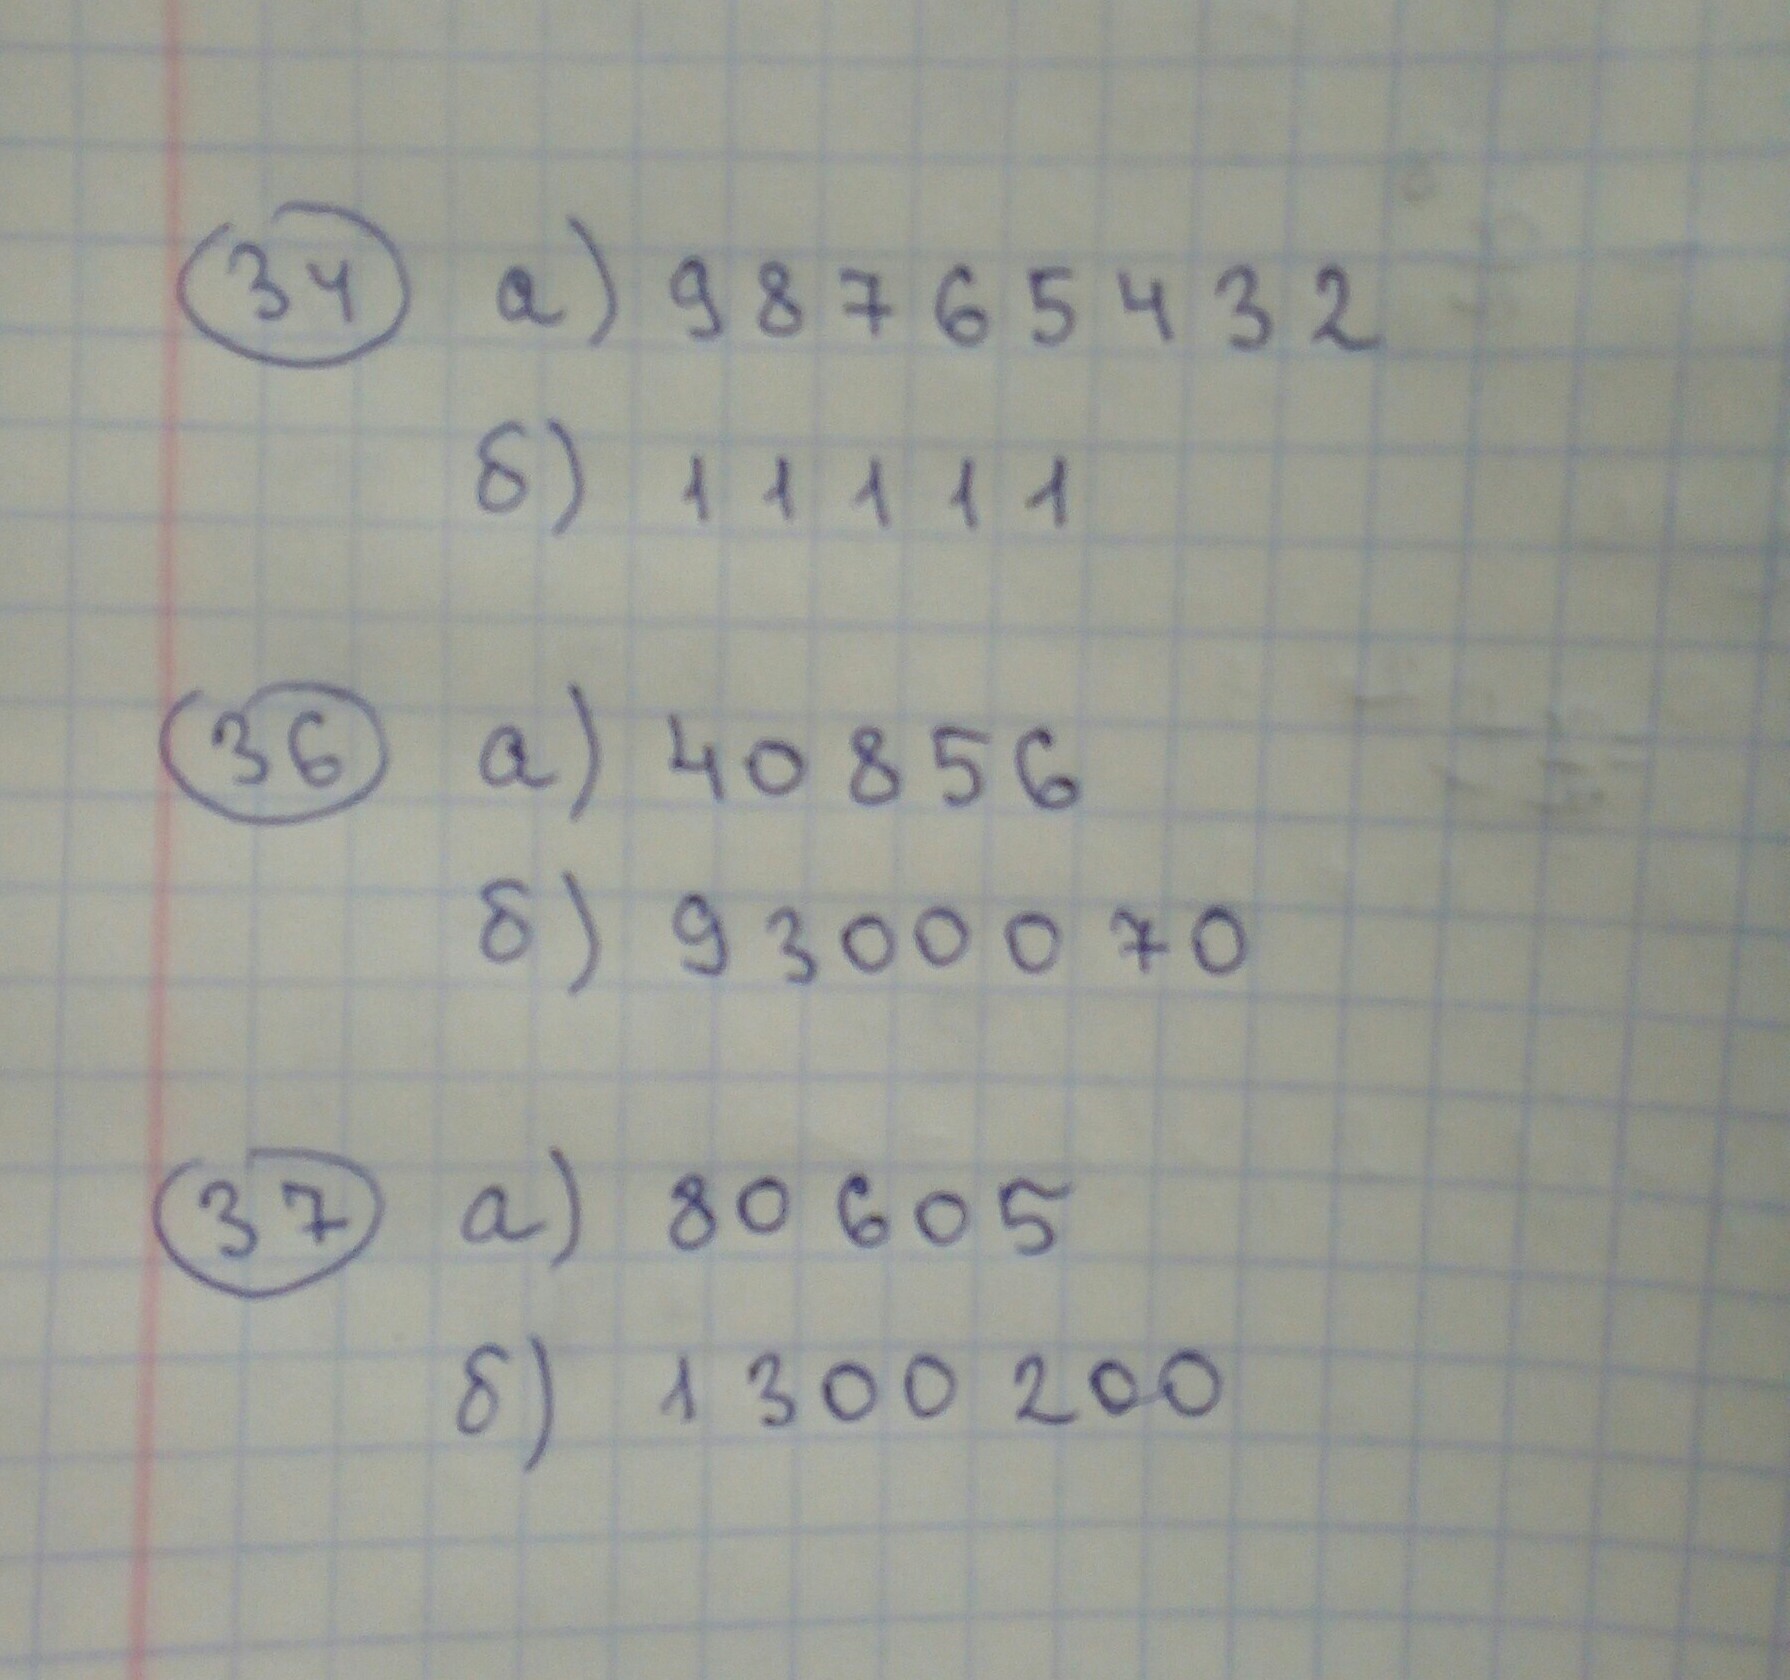 34 а) 98765432
б) 11111
36 а) 40856
б) 9300070
37 а) 80605
б) 1300200